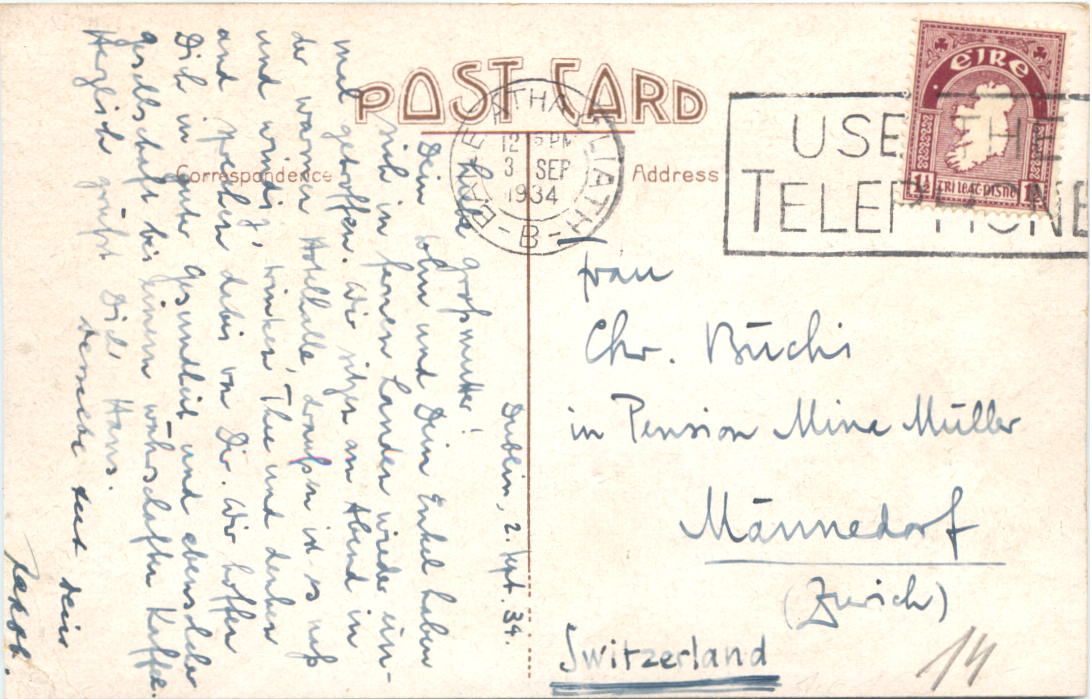 POST CARD
Correspondence
Address
BAILE ÁTHA CLIATH
12 15 PM
3 SEP
1934
B
USE THE
TELEPHONE
EIRE
1½ TRI LEAT-PISNE 1½
Dublin, 2. Sept. 34.
Liebe Großmutter!
Dein Sohn und Dein Enkel haben
sich in fernen Landen wieder ein-
mal getroffen. Wir sitzen am Abend in
der warmen Hotelhalle, draußen ist es naß
und windig, trinken Thee und denken
und sprechen dabei von Dir. Wir hoffen
Dich in guter Gesundheit und ebensolcher
Gesellschaft bei einem währschaften Kaffee.
Herzlich grüßt Dich Hans.
Derselbe tut Dein
Jakob.
Frau
Chr. Büchi
in Pension Mina Müller
Männedorf
(Zürich)
Switzerland
14